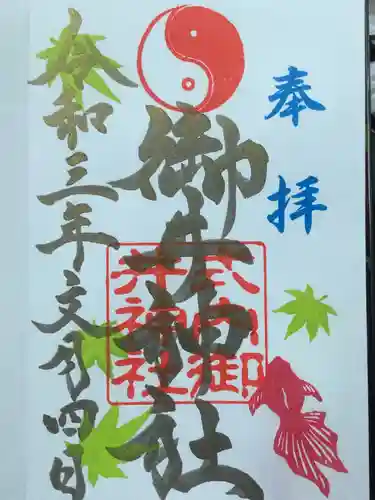 奉拝
御井神社
令和三年文月四日
式内御
井神社